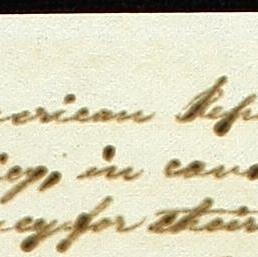 merican Dep
icy, in cons
ncy for their